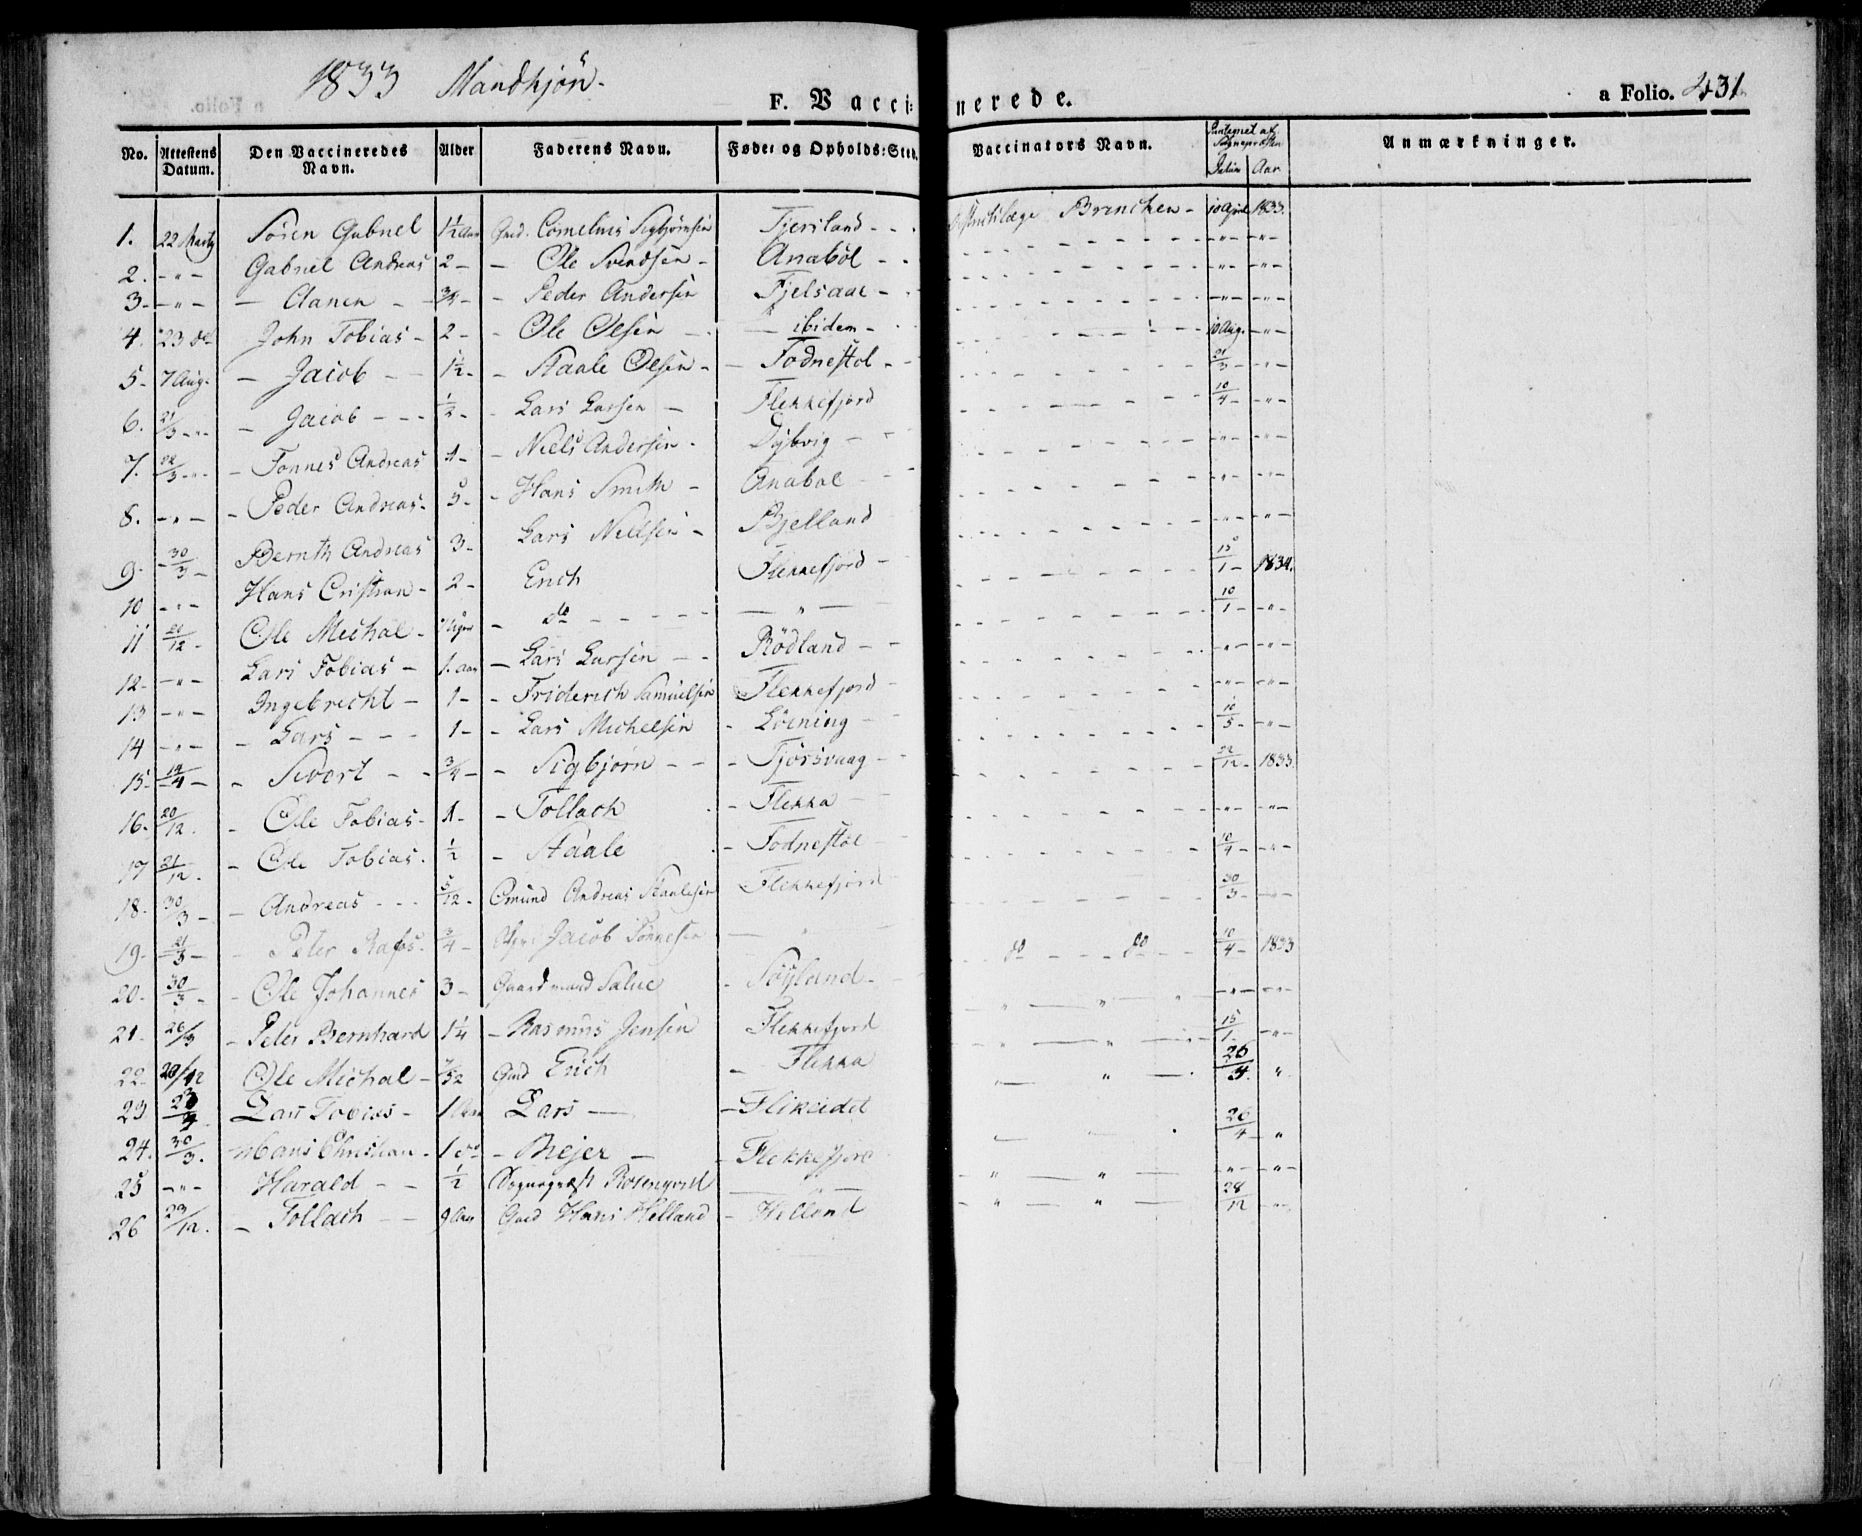 1833 Mandkjön.
F. Vaccinerede.
a Folio. 431
No. Attestens Datum. Den Vaccineredes Navn. Alder Faderens Navn. Føde- og Opholds-Sted. Vaccinators Navn. Datum Aar Anmærkninger.
1. 22 Martz Sören Gabriel 1½ Aar Gmd. Cornelius Sigbjörnsen Fjersland - - Brincken - 10 April 1833.
2. - " - Gabriel Andreas 2 - - Ole Svendsen - Anaböl - - - " - - " -
3 - - " - - Aanen - - ¾ - - Peder Andersen Fjelsaae - - " - - " -
4. 23 do John Tobias - 2 - - Ole Olsen - - ibidem - - " - - " -
5 - 7 Aug. - Jacob - - 1½ - - Staale Olsen - - Fodnestöl - 10 Aug. - " -
6. 21/3 - " - - Jacob - - - ½ - - Lars Larsen - Flekkefjord 21/3 - - " -
7. 22/3 - " - - Tönnes Andreas 4 - - Niels Andersen - Dybvig - - 10/4 - - " -
8. - " - - Peder Andreas - 5 - - Hans Smith - Anaböl - - - " - - " -
9 - 30/3 - Bernth Andreas 3 - Lars Nielsen - Bjelland - " - - " -
10 - " - Hans Cristian - 2 - Erich Flekkefjord - - " - - " -
11 21/12 - Ole Michal - do - - - - - " - 15/1 - 1834.
12 - - " - Lars Tobias - 1. Aar - Lars Larsen - - Rödland - - 10/1 - - " -
13 - " - Ingebrecht - 1 - - Friderich Samuelsen Flekkefjord - - " - - " -
14 - " - - Lars - - - 1 - - Lars Michelsen - Löening - - - " - - " -
15 - 14/4 - - Sivert - - ¾ - - Sigbjörn - - - Tjörsvaag - - 10/5 - - " -
16 - 20/12. - Ole Tobias - 1 - - Tollach - Flekka - 22/12 - 1833.
17 21/12. - Ole Tobias. ½ - Staale - Fodnestöl - - " - - " -
18 - 30/3 - - Andreas - - - 5/12 - Omund Andreas Staalesen Flekkefjord 10/4 - - " -
19 - 21/3 - - Peter - ¾ - Jacob Tönnesen - " - 30/3 - - " -
20 - 30/3 - - Ole Johannes 3 - Gaardmand Salve - Söyland - do - - - do - - 10/4 - 1833
21 - 26/3 - Peter Bernhard 1¼ - Rasmus Jensen Flekkefjord " - " - " - " - - " -
22 - 20/12 Ole Michal - Gmd Erich - Flekka - " - " - 15/1 - - " -
23 Lars Tobias - 1 Aar Lars - - Flikeidet - " - 26/4. "
24. 30/3. - Hans Christian - 1 do - Bejer - - Flekkefjord 26/4 - "
25 - " - Harald - - ½ Sognepræst Rosenqvist - " - " - " - " - - " -
26 29/12. - Tollach - - 9 Aar Gmd Hans Helland - Helland " - " - 28/12 - " -